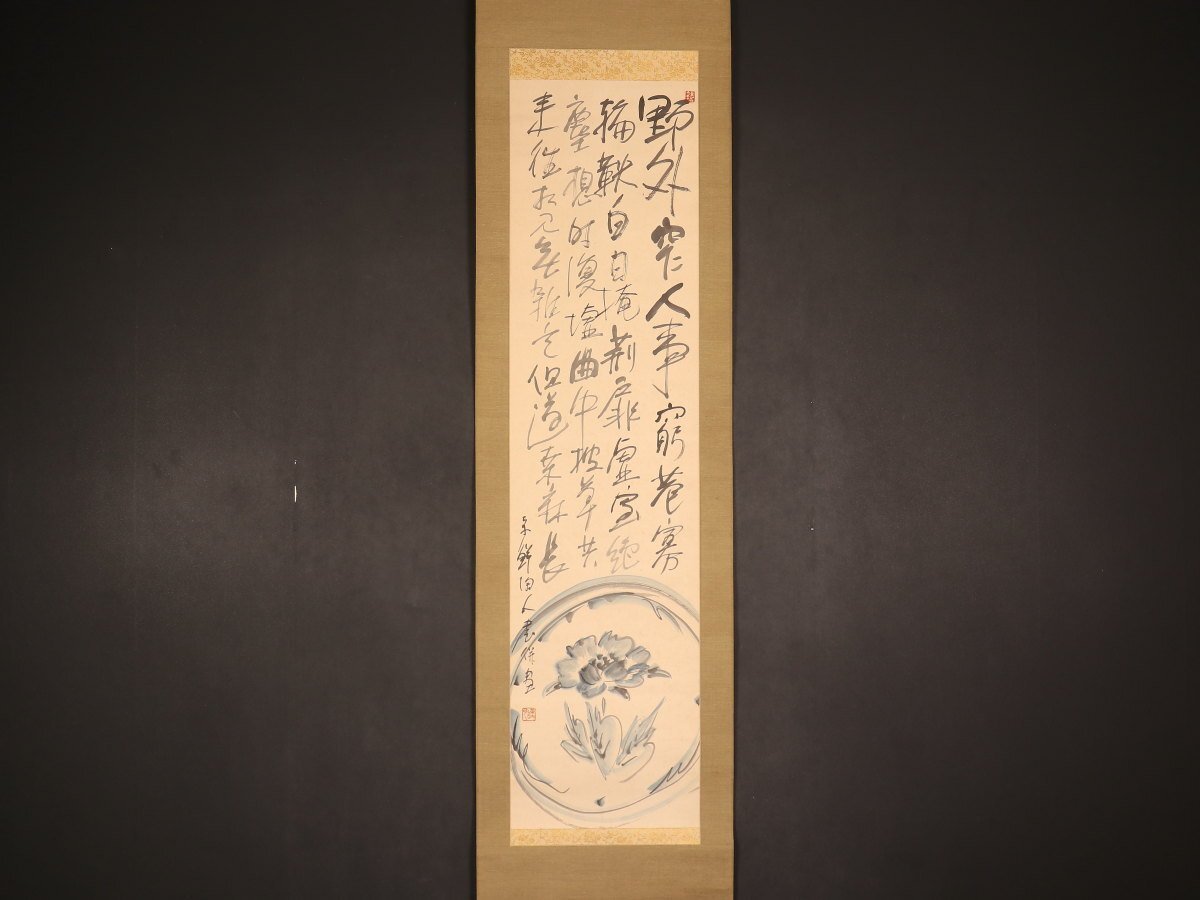 野外罕人事窮巷寡
輪鞅白日掩荊扉虛室絕
塵想时復墟曲中披草共
来往相見無雜言但道桑麻長
陶人書併畫